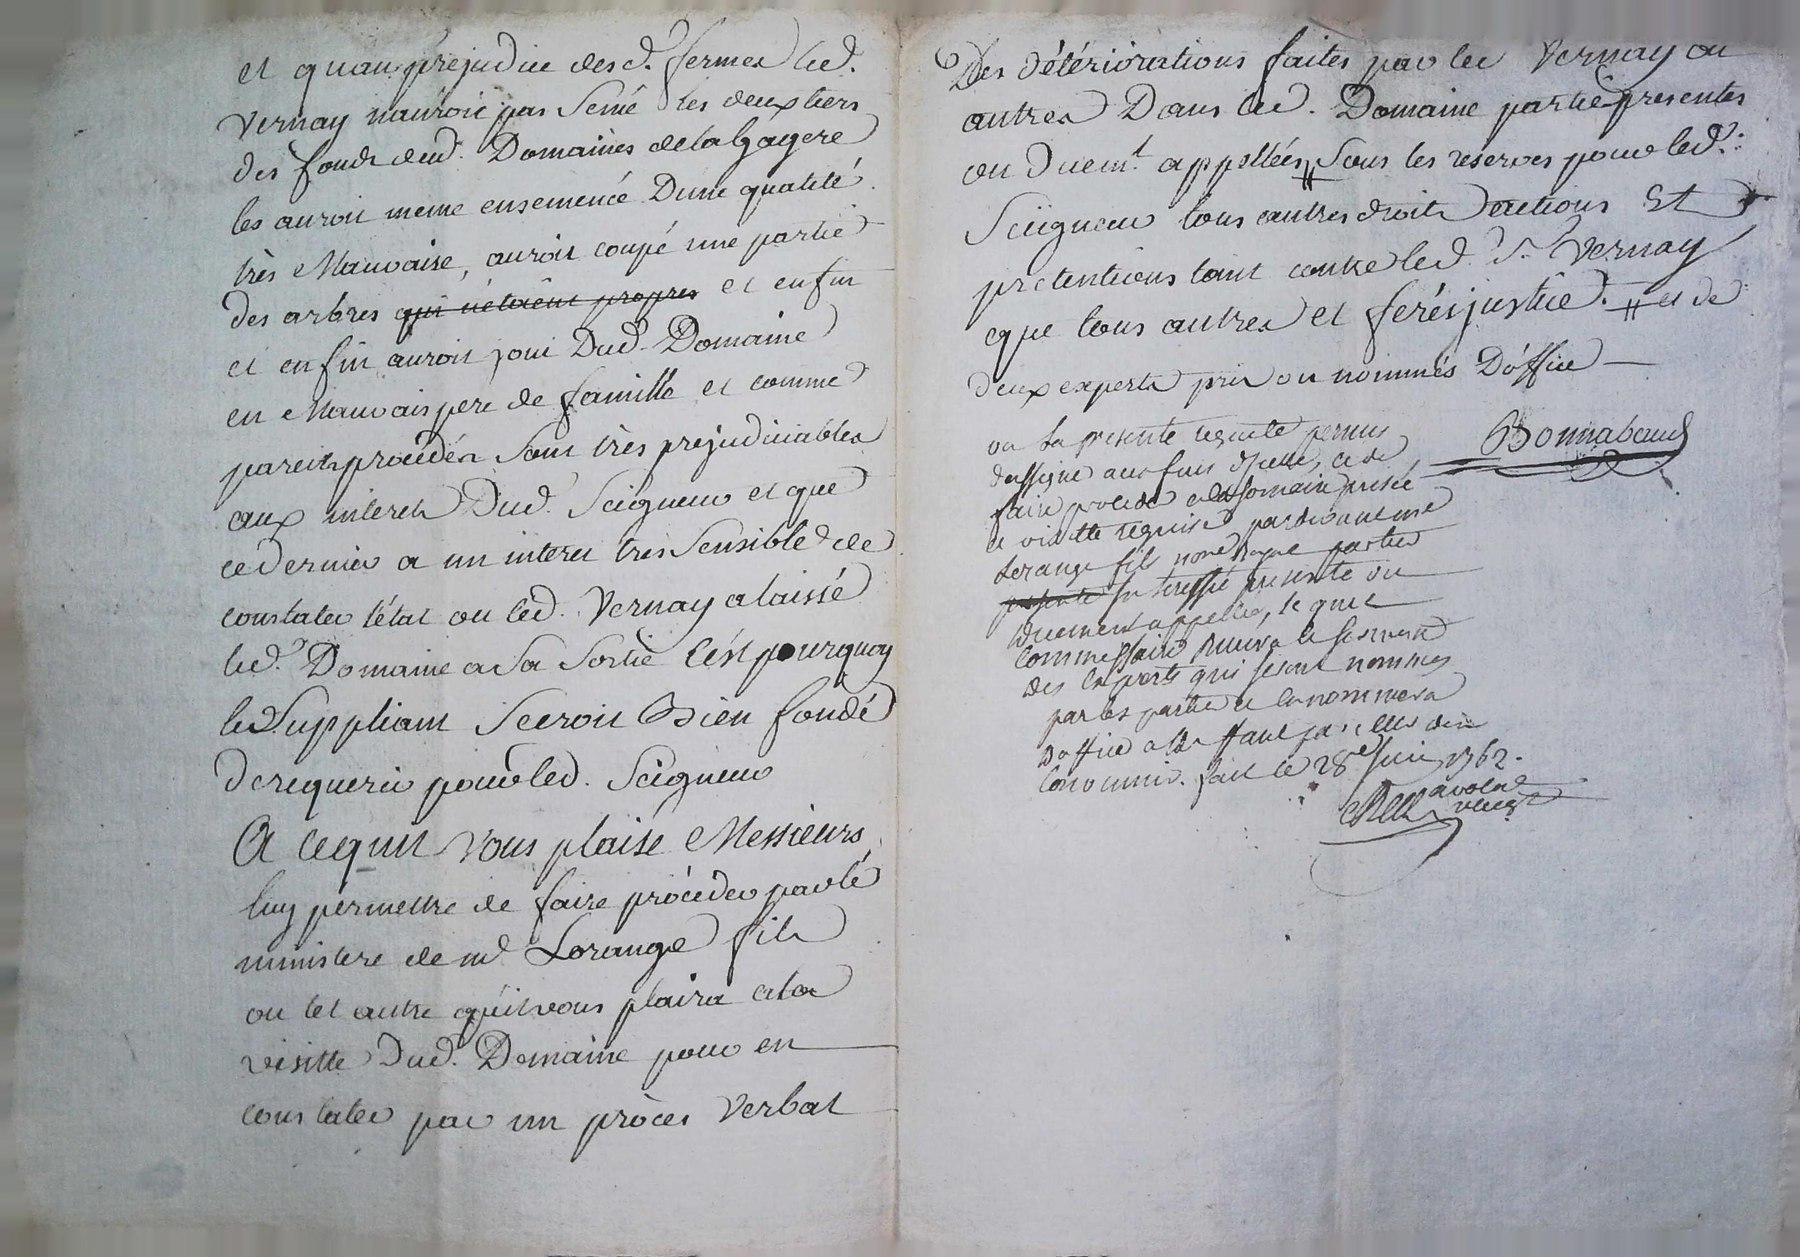 et quau prejudice des d. fermes led.
Vernay nauroit pas Semé les deux tiers
des fonds dud. Domaines de la
les auroit meme ensemencé Dune qualité
très Mauvaise, auroit coupé une partie
des arbres qui n'etoient propres et enfin
et enfin auroit joui Dud. Domaine
en Mauvais pere de famille et comme
pareils procédés Sont très prejudiciables
aux interets Dud. Seigneur et que
ce dernier a un interet tres Sensible de
constater l'état ou led. Vernay a laissé
led. Domaine a Sa Sortie C'est pourquoy
led Suppliant Seeroit Bien fondé
de requerir pour led. Seigneur
A cequil vous plaise Messieurs
luy permettre de faire procéder par le
ministere de me Lorange fils
ou tel autre qu'il vous plaira a la
visitte Dud. Domaine pour en
constater par un procès verbal
Des détériorations faites par led Vernay ou
autres Dans led. Domaine partie presentes
ou Duemt. appellées Sous les reserves pour led.
Seigneur tous autres droits actions Et
pretentions tant contre led. Sr. Vernay
que tous autres et ferés justice. et de
deux experts pris ou nommés D'office
vu la presente requete permis
dassigner aux fins dicelle, et de
faire proceder a la
et visitte requise pardevant me
Lorange fils partie
presente ou
duement appellée, lequel
Commissaire recevra le serment
des Experts qui seront nommés
par les parties et en nommera
Doffice a deffaut par elles den
Convenir. fait le 28e Juin 1762.
Bonnabaud